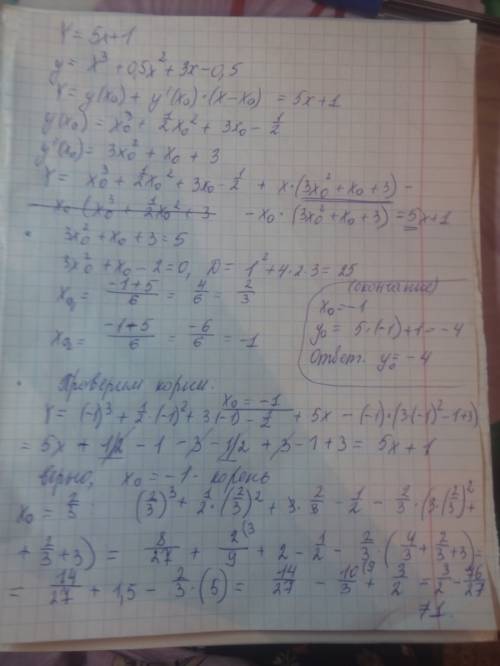 Y = 5x+1
y = x³ + 0,5x² + 3x - 0,5
Y = y(x₀) + y'(x₀)·(x-x₀) = 5x+1
y(x₀) = x₀³ + 1/2 x₀² + 3x₀ - 1/2
y'(x₀) = 3x₀² + x₀ + 3
Y = x₀³ + 1/2 x₀² + 3x₀ - 1/2 + x·(3x₀² + x₀ + 3) -
- x₀·(3x₀² + x₀ + 3) = 5x+1
• 3x₀² + x₀ + 3 = 5
3x₀² + x₀ - 2 = 0, D = 1² + 4·2·3 = 25
x₀₁ = (-1+5)/6 = 4/6 = 2/3
x₀₂ = (-1-5)/6 = -6/6 = -1
(окончание)
x₀ = -1
y₀ = 5·(-1)+1 = -4
Ответ: y₀ = -4
• Проверим корни.
x₀ = -1
Y = (-1)³ + 1/2·(-1)² + 3·(-1) - 1/2 + 5x - (-1)·(3(-1)² - 1 + 3)
= 5x + 1/2 - 1 - 3 - 1/2 + 3 - 1 + 3 = 5x + 1
верно, x₀ = -1 - корень
x₀ = 2/3 (2/3)³ + 1/2·(2/3)² + 3·2/3 - 1/2 - 2/3·(3·(2/3)² +
+ 2/3 + 3) = 8/27 + 2/9 + 2 - 1/2 - 2/3·(4/3 + 2/3 + 3) =
= 14/27 + 1,5 - 2/3·(5) = 14/27 - 10/3 + 3/2 = 3/2 - 76/27
≠ 1.